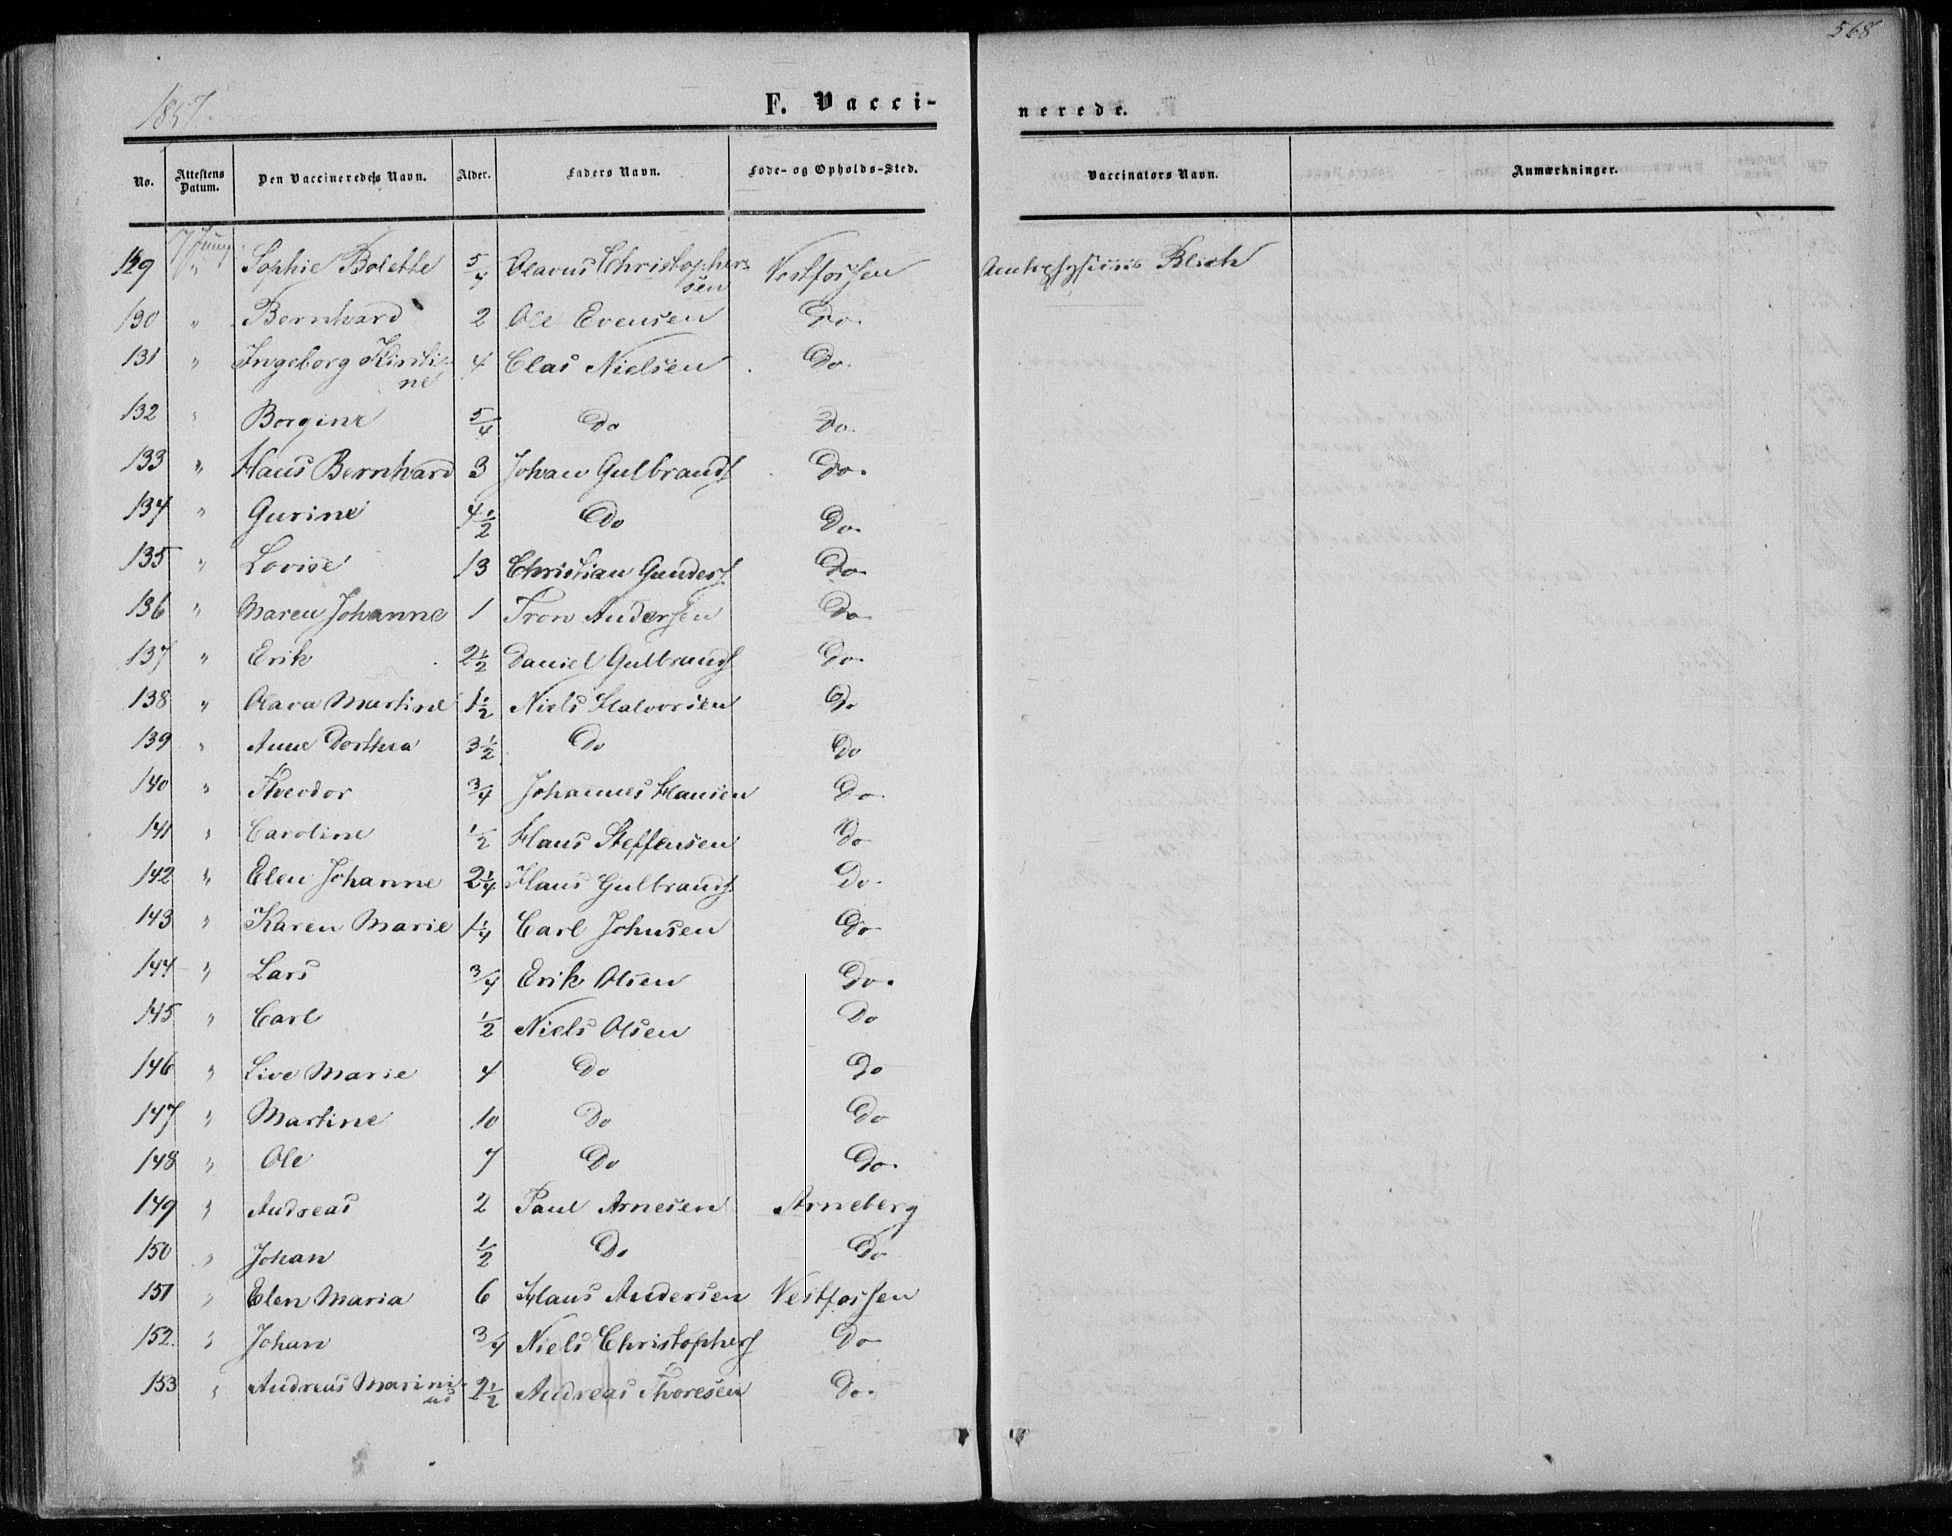 568
1857
F. Vacci-
nerede.
No. Attestens Datum. Den Vaccineredes Navn. Alder. Faders Navn. Føde- og Opholds-Sted. Vaccinators Navn. Anmærkninger.
129 17 Juny " Sophie Bolette 5/4 Olavus Christophersen Vestfossen Amtsphysicus Blich
130 " Bernhard 2 Ole Evensen Do.
131 " Ingeborg Kirstine 4 Clas Nielsen Do.
132 " Borgine 5/4 Do Do.
133 " Hans Bernhard 3 Johan Gulbrands Do.
134 " Gurine 4½ Do Do.
135 " Lovise 13 Christian Gunders. Do.
136 " Maren Johanne 1 Tron Andersen Do.
137 " Erik 2½ Daniel Gulbrands Do.
138 " Olava Martine 1½ Niels Halvorsen Do
139 " Anne Dorthea 3½ Do Do
140 " Theodor 3/4 Johannes Hansen Do.
141 " Caroline ½ Hans Steffensen Do
142 " Elen Johanne 2¼ Hans Gulbrands. Do.
143 " Karen Marie 1¼ Carl Johnsen Do
144 " Lars 3/4 Erik Olsen Do.
145 " Carl ½ Niels Olsen Do
146 " Live Marie 4 Do Do
147 " Martine 10 Do Do
148 " Ole 7 Do Do.
149 " Andreas 2 Paul Arnesen Arneberg
150 " Johan ½ Do Do
151 " Elen Maria 6 Hans Andersen Vestfossen
152. " Johan 3/4 Niels Christophers Do
153 " Andreas Marinius 2½ Andreas Thoresen Do.